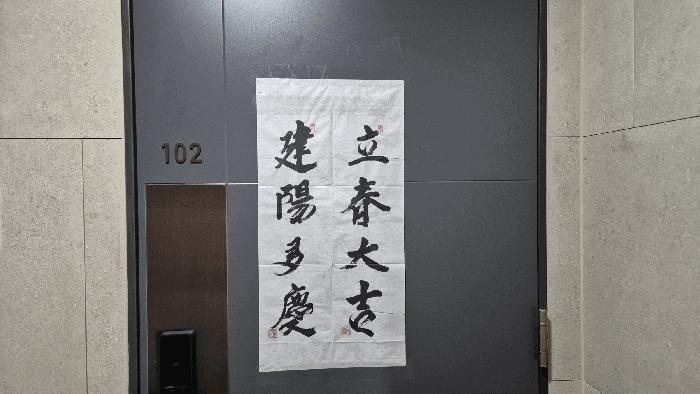 102
立春大吉
建陽多慶